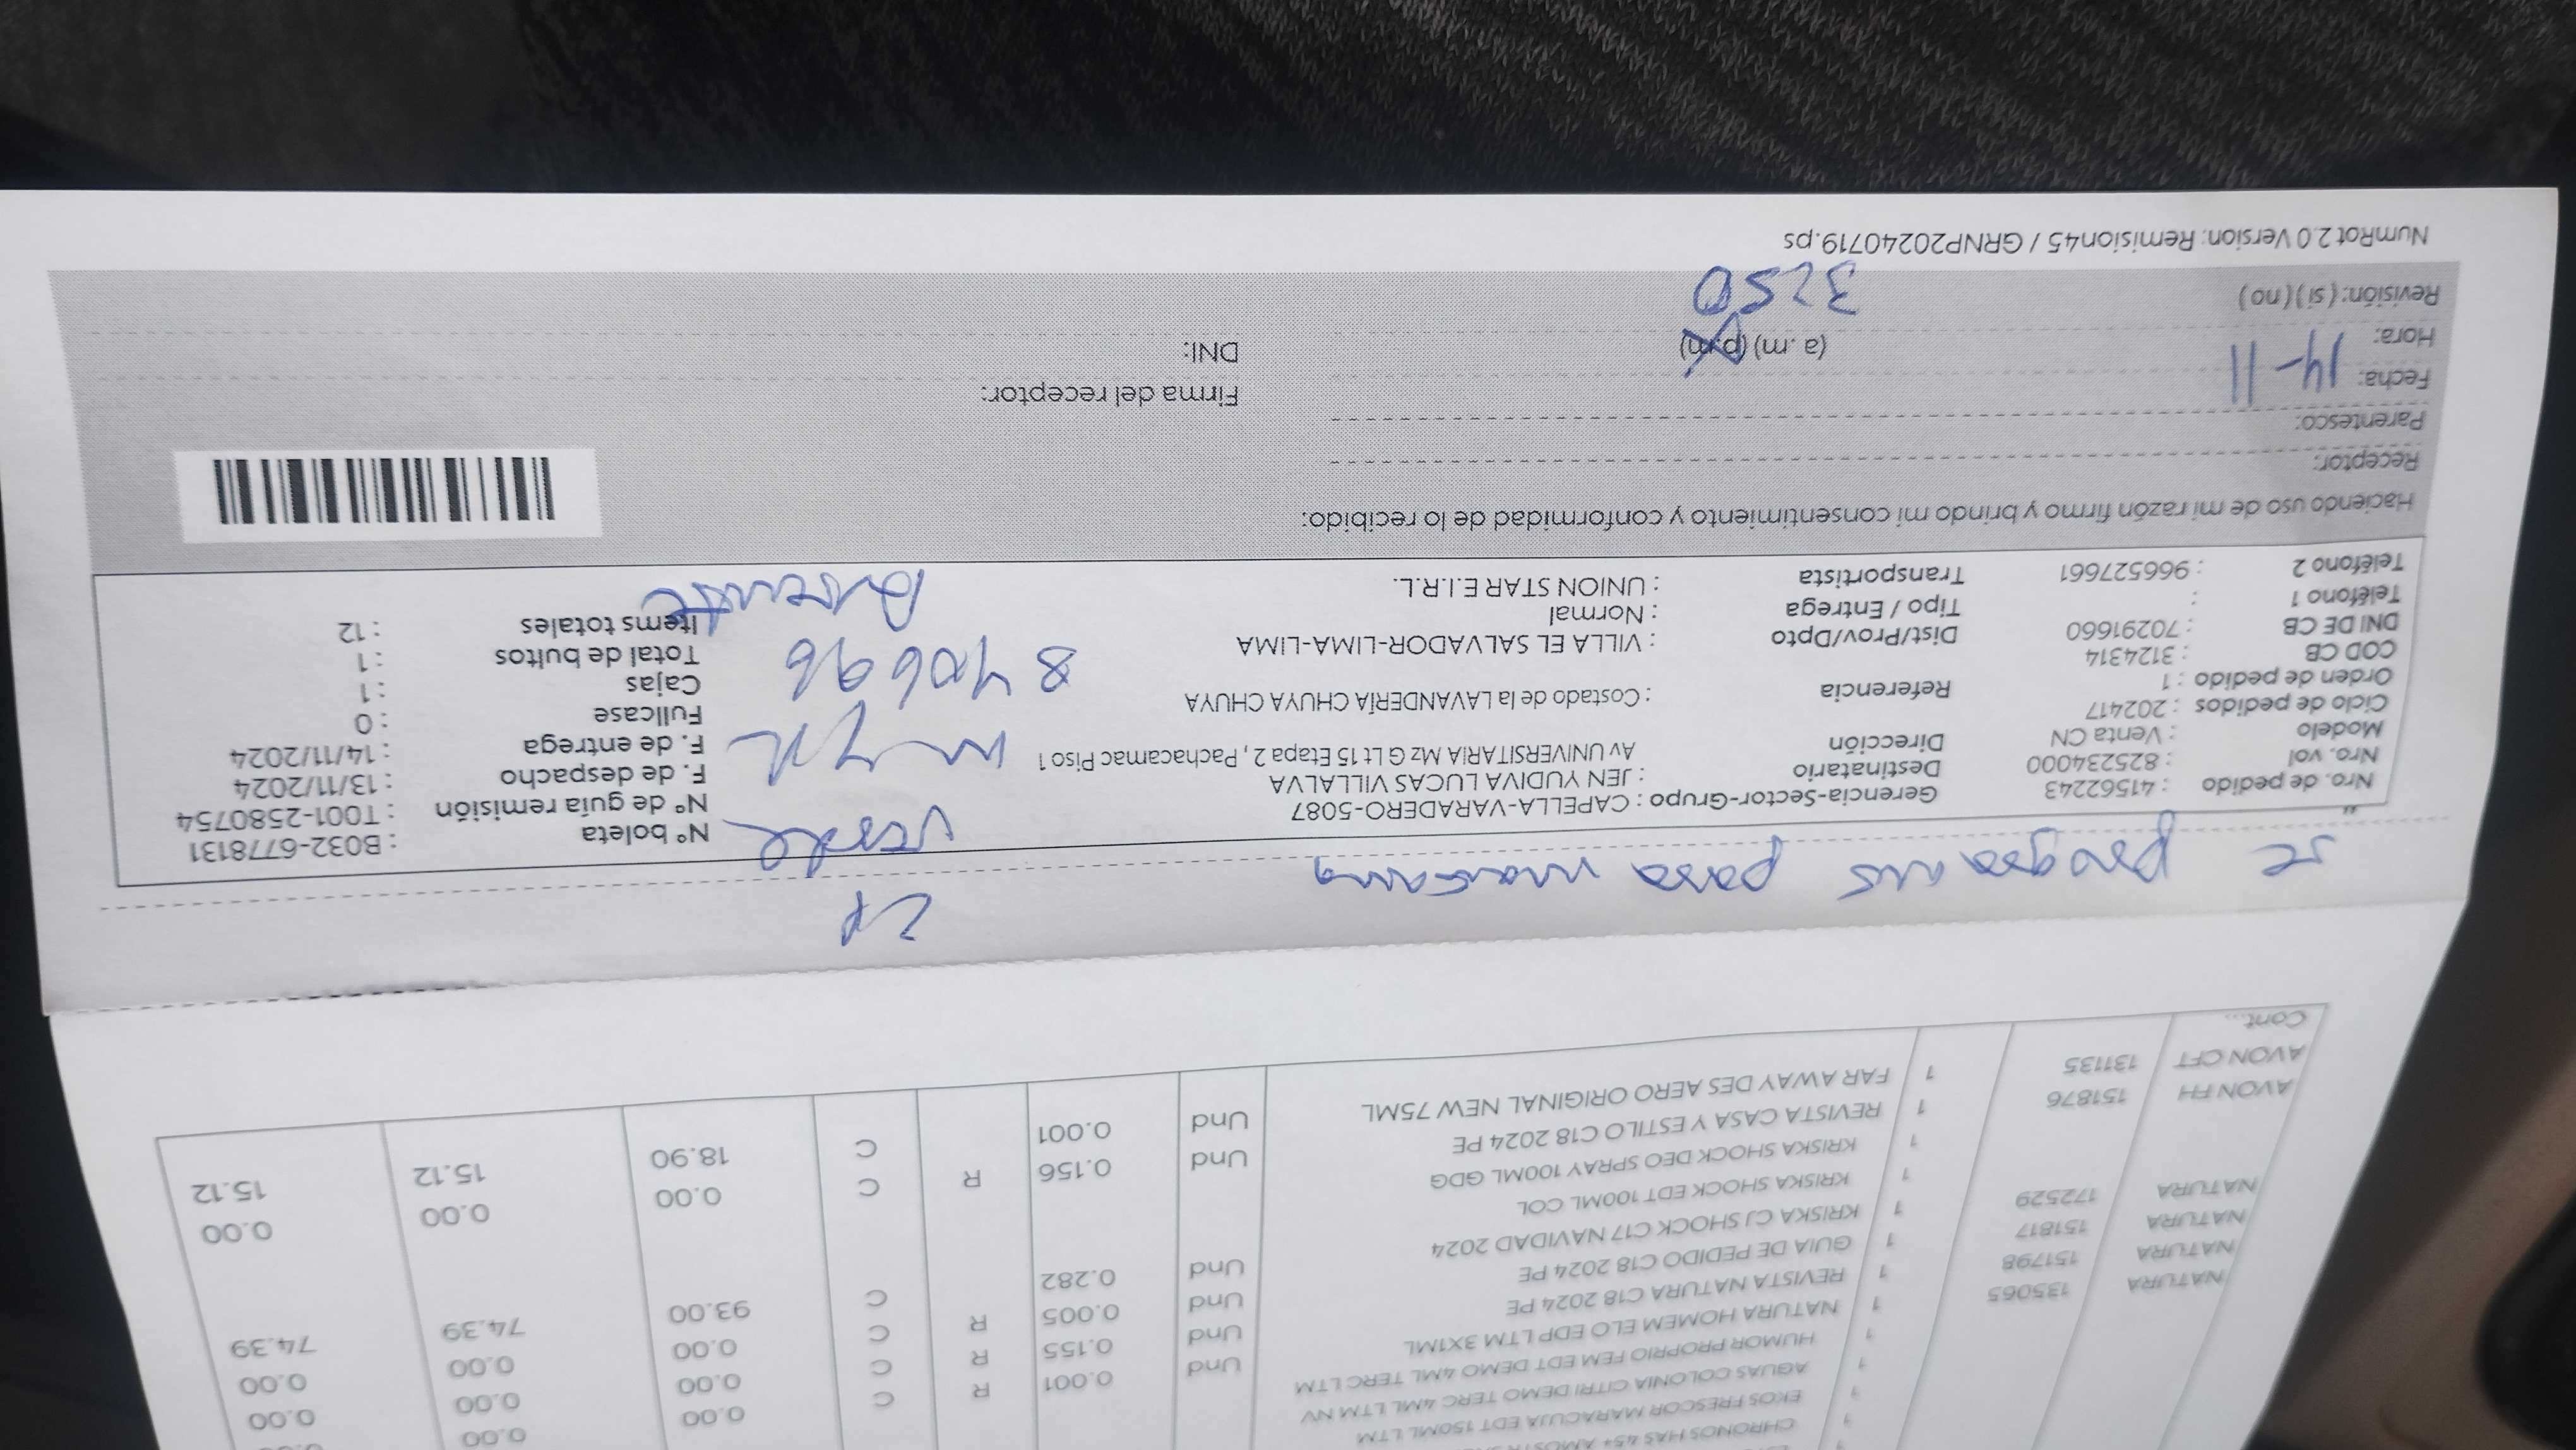 CHRONOS HAS 45+
EKOS FRESCOR MARACUJA EDT 150ML LTM 1 0.00 0.00
AGUAS COLONIA CITRI DEMO TERC 4ML LTM NV 1 0.00 0.00 0.00
HUMOR PROPRIO FEM EDT DEMO 4ML TERC LTM 1 Und 0.001 R C 0.00 0.00 0.00
NATURA 135065 1 NATURA HOMEM ELO EDP LTM 3X1ML Und 0.155 R C 0.00 0.00 0.00
NATURA 151798 1 REVISTA NATURA C18 2024 PE Und 0.005 R C 93.00 74.39 74.39
NATURA 151817 1 GUIA DE PEDIDO C18 2024 PE Und 0.282 C
NATURA 172529 1 KRISKA CJ SHOCK C17 NAVIDAD 2024
1 KRISKA SHOCK EDT 100ML COL
1 KRISKA SHOCK DEO SPRAY 100ML GDG
AVON FH 151876 1 REVISTA CASA Y ESTILO C18 2024 PE Und 0.156 R C 0.00 0.00 0.00
AVON CFT 131135 1 FAR AWAY DES AERO ORIGINAL NEW 75ML Und 0.001 C 18.90 15.12 15.12
Cont...
2P
se para mañana
Nro. de pedido : 41562243
Nro. vol : 825234000
Modelo : Venta CN
Ciclo de pedidos : 202417
Orden de pedido : 1
COD CB : 3124314
DNI DE CB : 70291660
Teléfono 1 :
Teléfono 2 : 966527661
Gerencia-Sector-Grupo : CAPELLA-VARADERO-5087
Destinatario : JEN YUDIVA LUCAS VILLALVA
Dirección Av UNIVERSITARIA Mz G Lt 15 Etapa 2, Pachacamac Piso 1
Referencia : Costado de la LAVANDERÍA CHUYA CHUYA
Dist/Prov/Dpto : VILLA EL SALVADOR-LIMA-LIMA
Tipo / Entrega : Normal
Transportista : UNION STAR E.I.R.L.
verde
840696
Ausente
N° boleta : B032-6778131
N° de guía remisión : T001-2580754
F. de despacho : 13/11/2024
F. de entrega : 14/11/2024
Fullcase : 0
Cajas : 1
Total de bultos : 1
Items totales : 12
Haciendo uso de mi razón firmo y brindo mi consentimiento y conformidad de lo recibido:
Receptor:
Parentesco:
Fecha: 14-11
Firma del receptor:
Hora: (a. m) (p.m)
DNI:
Revisión: (si) (no)
3250
NumRot 2.0 Version: Remision45 / GRNP20240719.ps